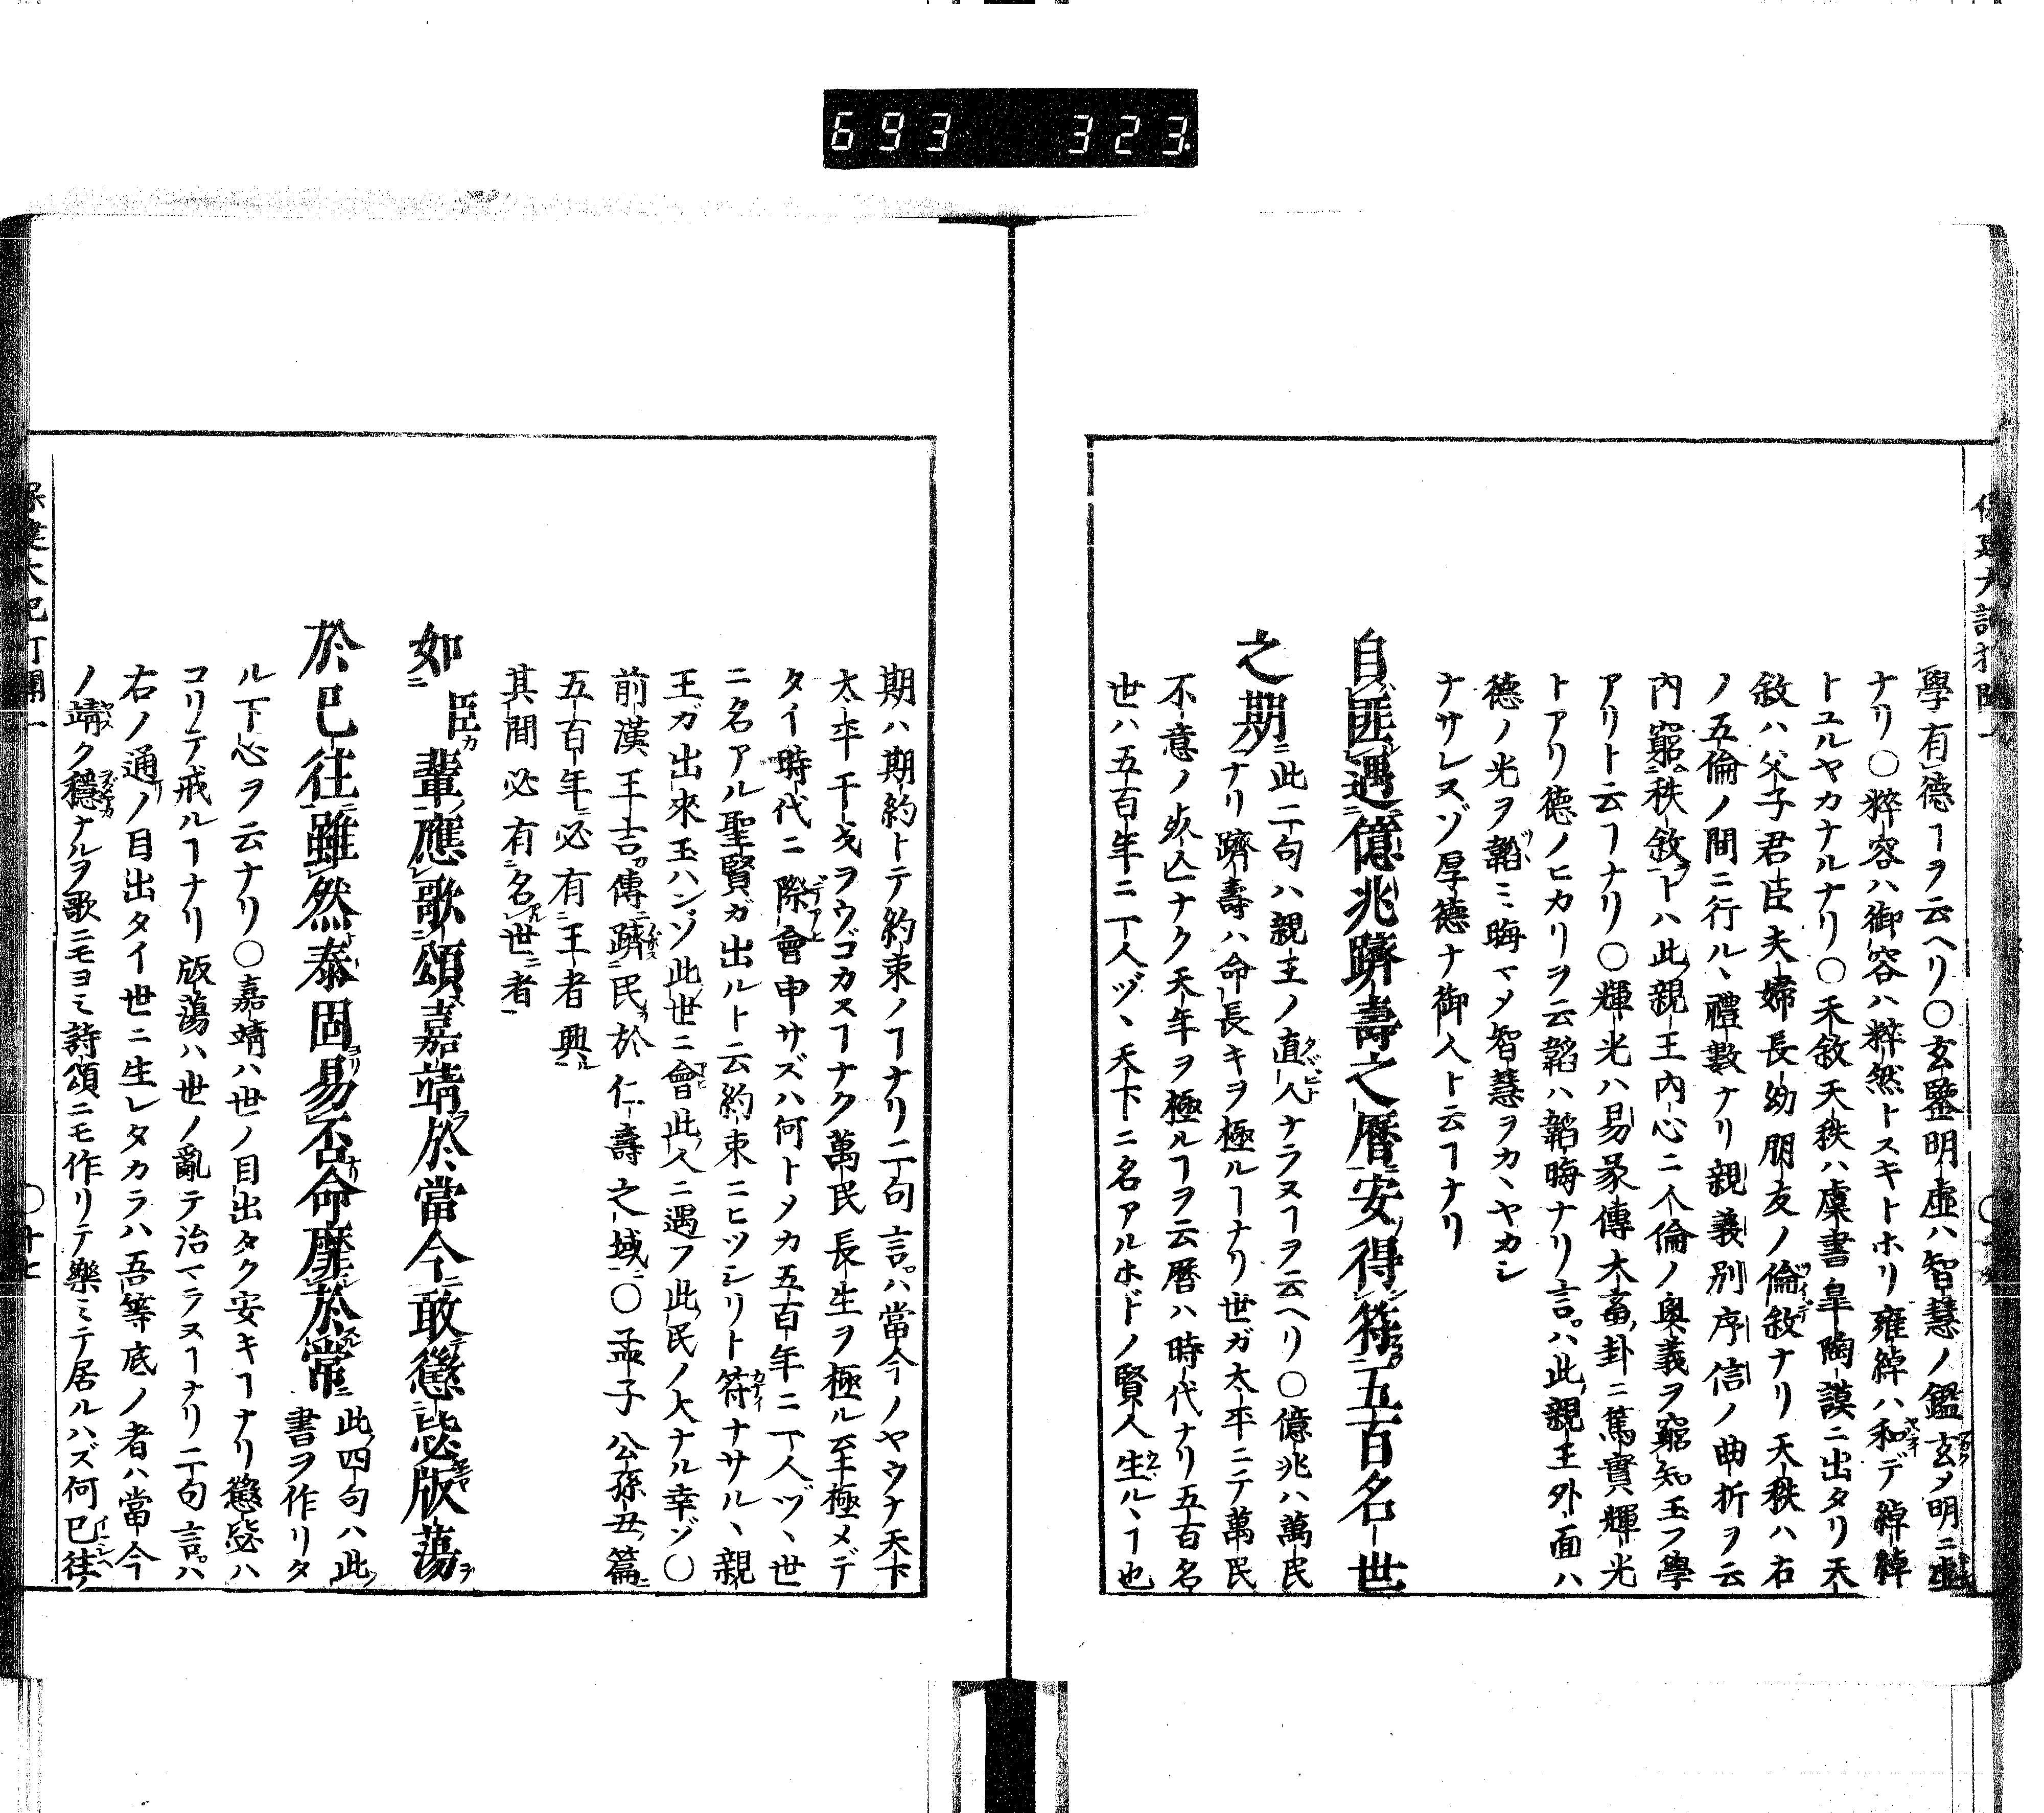 693 323
保建大記打聞一
學有德ヿヲ云ヘリ〇玄鑒明虛ハ智慧ノ鑑玄ノ明ニ虛
ナリ〇粹容ハ御容ハ粹然トスキトホリ雍綽ハ和デ綽綽
トユルヤカナルナリ〇禾敘天秩ハ虞書皐陶謨ニ出タリ天
敘ハ父子君臣夫婦長幼朋友ノ倫敘ナリ天秩ハ右
ノ五倫ノ間ニ行ルヽ禮數ナリ親義別序信ノ曲折ヲ云
內窮秩敘トハ此親王內心ニ人倫ノ奧義ヲ窮知玉フ學
アリト云ヿナリ〇輝光ハ易彖傳大畜卦ニ篤實輝光
トアリ德ノヒカリヲ云韜ハ韜晦ナリ言ハ此親王外面ハ
德ノ光ヲ韜ミ晦マメ智慧ヲカヽヤカシ
ナサレヌゾ厚德ナ御人ト云ヿナリ
自匪遇億兆躋壽之曆安得符五百名世
之期
此二句ハ親王ノ直人ナラヌヿヲ云ヘリ〇億兆ハ萬民
ナリ躋壽ハ命長キヲ極ルヿナリ世ガ太平ニテ萬民
不意ノ死亡ナク天年ヲ極ルヿヲ云曆ハ時代ナリ五百名
世ハ五百年ニ一人ヅヽ天下ニ名アルホドノ賢人生ルヽヿ也
期ハ期約トテ約束ノヿナリ二句言ハ當今ノヤウナ天下
太平干戈ヲウゴカスヿナク萬民長生ヲ極ル至極メデ
タイ時代ニ際會申サズハ何トメカ五百年ニ一人ヅヽ世
ニ名アル聖賢ガ出ルト云約束ニヒツシリト符ナサルヽ親
王ガ出來玉ハンゾ此世ニ會此人ニ遇フ此民ノ大ナル幸ゾ〇
前漢王吉傳躋民於仁壽之域〇孟子公孫丑篇
五百年必有王者興
其間必有名世者
如臣輩應歌頌嘉靖於當今敢懲毖版蕩
於已往雖然泰固易否命靡於常
此四句ハ此
書ヲ作リタ
ル下心ヲ云ナリ〇嘉靖ハ世ノ目出タク安キヿナリ懲毖ハ
コリテ戒ルヿナリ版蕩ハ世ノ亂テ治マラヌヿナリ二句言ハ
右ノ通ノ目出タイ世ニ生レタカラハ吾等底ノ者ハ當今
ノ靖ク穩ナルヲ歌ニモヨミ詩頌ニモ作リテ樂ミテ居ルハズ何已往ノ
保建大記打聞一
〇十七